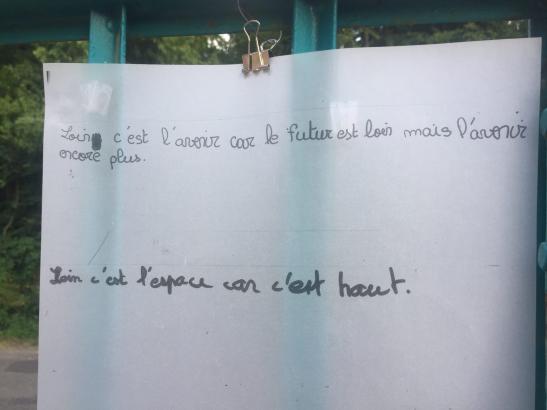 Loin c'est l'avenir car le futur est loin mais l'avenir
encore plus.
Loin c'est l'espace car c'est haut.